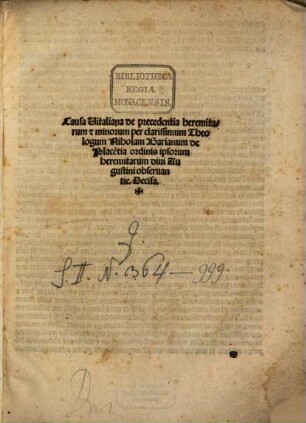 BIBLIOTHECA
REGIA
MONACENSIS.
Causa Vitaliana de precedentia heremita
rum ⁊ minorum per clarissimum Theo
logum Nibolam Barianum de
Placētia ordinis ipsorum
heremitarum diui Au
gustini obseruan
tie. Decisa.
✠
J. II. N. 364 — 999.